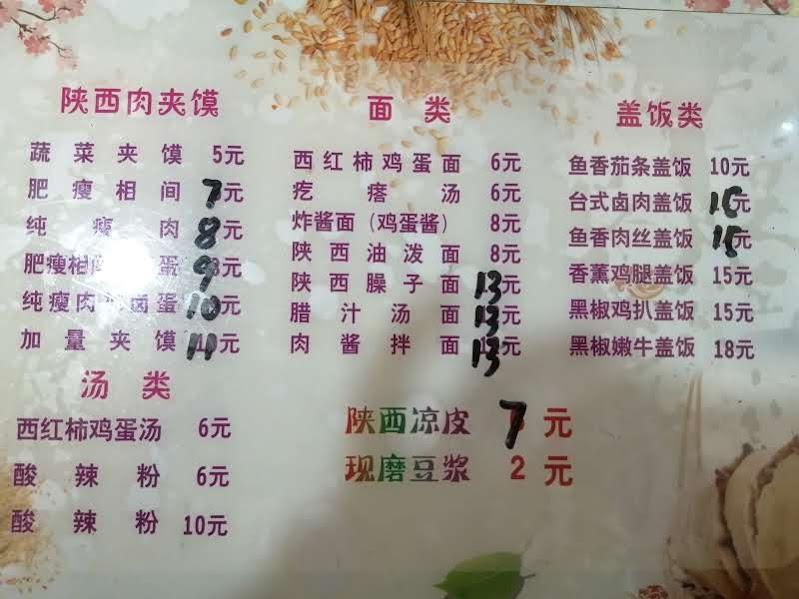 陕西肉夹馍
蔬菜夹馍 5元
肥瘦相间 7元
纯瘦肉 8元
肥瘦相 蛋 9元
纯瘦肉 卤蛋 10元
加量夹馍 11元
汤类
西红柿鸡蛋汤 6元
酸辣粉 6元
酸辣粉 10元
面类
西红柿鸡蛋面 6元
疙瘩汤 6元
炸酱面（鸡蛋酱） 8元
陕西油泼面 8元
陕西臊子面 13元
腊汁汤面 13元
肉酱拌面 13元
陕西凉皮 7元
现磨豆浆 2元
盖饭类
鱼香茄条盖饭 10元
台式卤肉盖饭 元
鱼香肉丝盖饭 元
香薰鸡腿盖饭 15元
黑椒鸡扒盖饭 15元
黑椒嫩牛盖饭 18元